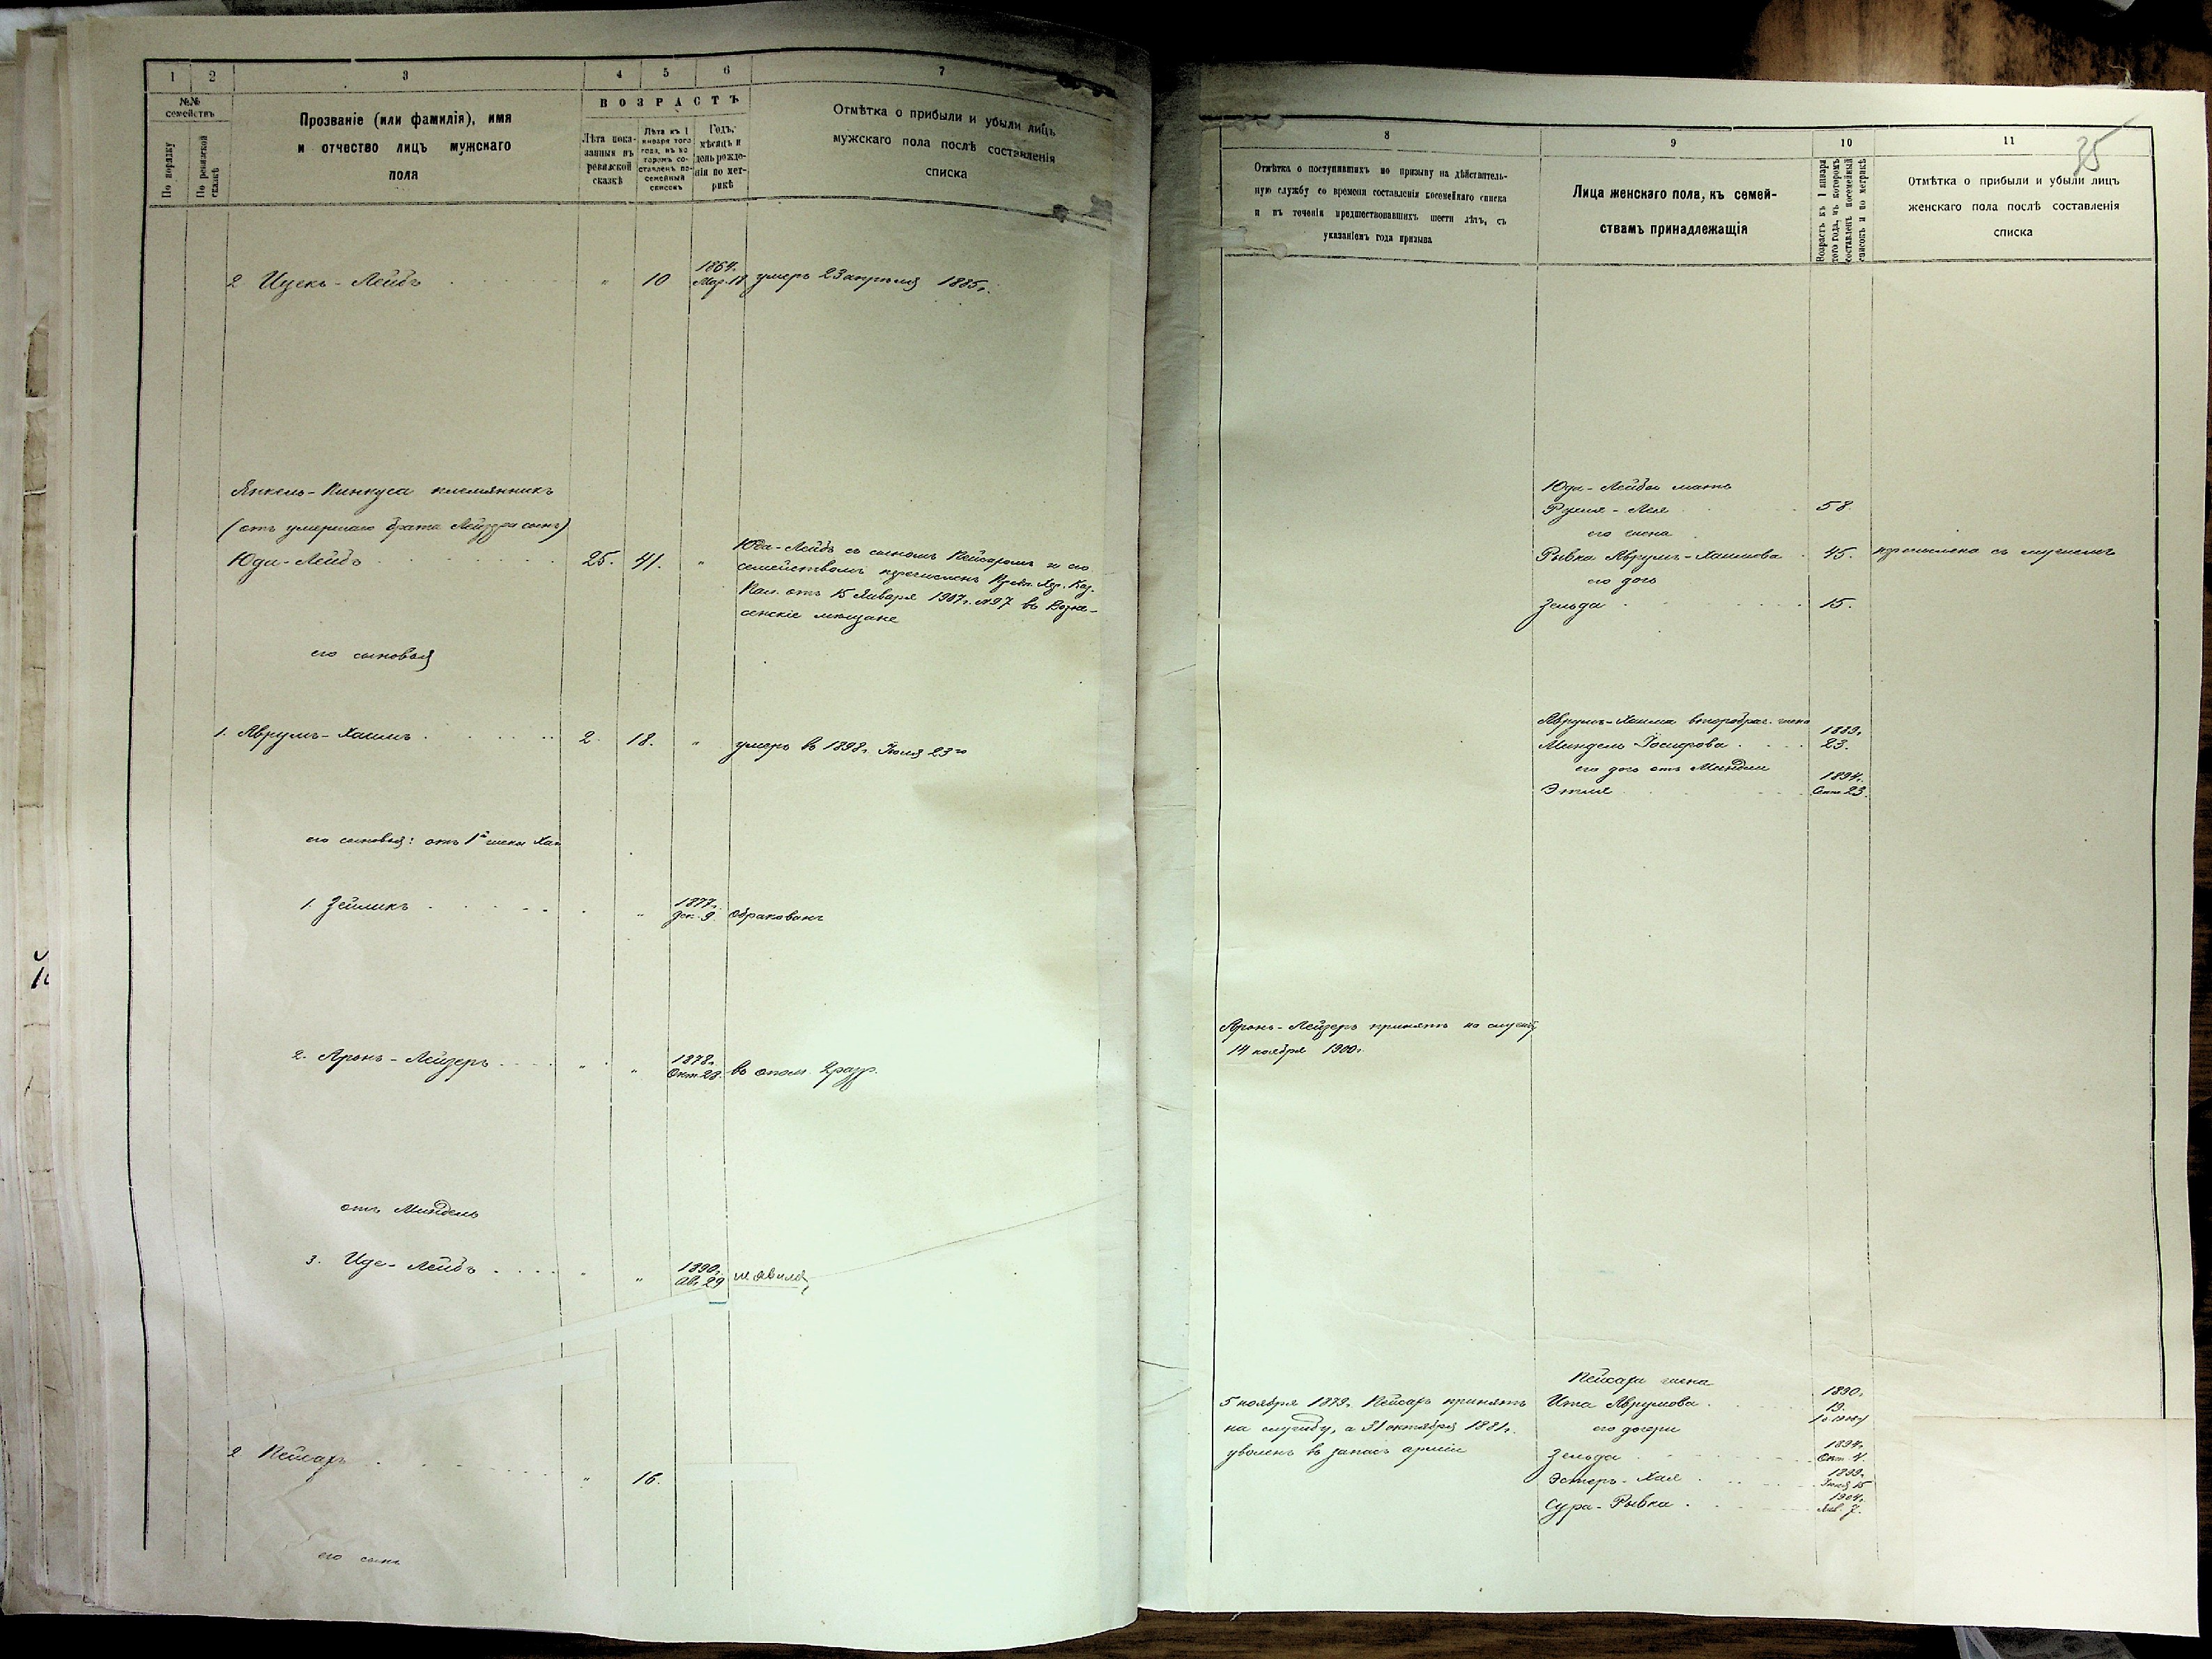 1 2 3 4 5 6 7
№№ семействъ
По порядку
По ревизской сказкѣ
Прозваніе (или фамилія), имя
и отчество лицъ мужскаго
пола
ВОЗРАСТЪ
Лѣта пока-
занныя въ
ревизской
сказкѣ
Лѣта къ 1
января того
года, въ ко
торомъ со-
ставленъ по-
семейный
списокъ
Годъ,
мѣсяцъ и
день рожде-
нія по мет-
рикѣ
Отмѣтка о прибыли и убыли лицъ
мужскаго пола послѣ составленія
списка
2 Ицекъ-Лейбъ " 10 1864г. Мар. 18 умеръ 23 апрѣля 1885г.
Янкель-Пинкуса племянникъ
(отъ умершаго брата Лейзера сынъ)
Юда-Лейбъ 25. 41. "
Юда-Лейбъ съ сыномъ Пейсаромъ и его
семействомъ перечисленъ Хер. Каз.
Пал. отъ 15 Января 1907г. №97 въ Возне-
сенскіе мѣщане
его сыновья
1. Аврумъ-Хаимъ 2. 18. " умеръ въ 1898г. Іюля 23го
его сыновья: отъ 1й жены
1. Зейликъ " 1877г. Дек. 9. обракованъ
2. Аронъ-Лейзеръ " " 1878г. Окт. 28. въ опол. 2 разр.
отъ Миндель
3. Иде-Лейбъ " " 1890г. Ав. 29
2 Пейсахъ " 16.
его сынъ
8 9 10 11
35
Отмѣтка о поступившихъ по призыву на дѣйствитель-
ную службу со времени составленія посемейнаго списка
и въ теченіи предшествовавшихъ шести лѣтъ, съ
указаніемъ года призыва
Лица женскаго пола, къ семей-
ствамъ принадлежащія
Возрастъ къ 1 января
того года, въ которомъ
составленъ посемейный
списокъ и по метрикѣ
Отмѣтка о прибыли и убыли лицъ
женскаго пола послѣ составленія
списка
Юда-Лейбы мать
Рухля-Лея 58.
его жена
Рывка Аврумъ-Хаимова 45. перечислена съ мужемъ
его дочь
Зельда 15.
Аврумъ-Хаима второбрач. жена
Миндель Іосифова 1889г. 23.
его дочь отъ Миндели
Этля 1894г. Сент. 23.
Аронъ-Лейзеръ принятъ на службу
14 ноября 1900г.
5 ноября 1879г. Пейсахъ принятъ
на службу, а 31 октября 1881г.
уволенъ въ запасъ арміи
Пейсаха жена
Ита Аврумова 1890г. 19.
его дочери
Зельда 1894г. Окт. 4.
Эстеръ-Хая 1899г. Іюня 15
Сура-Рывка 1904г. Янв. 7.